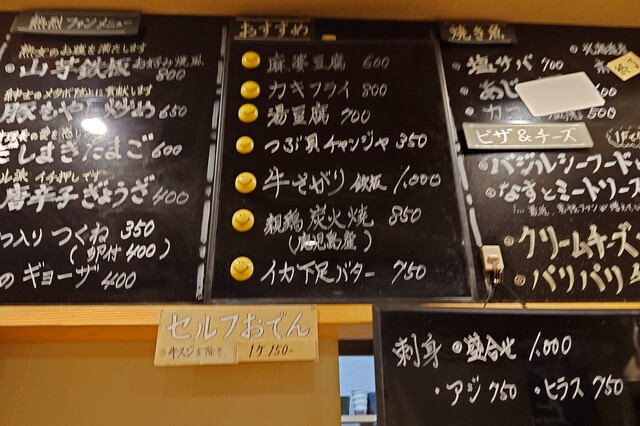 熱烈ファンメニュー
熟女のお腹を満たします
山芋鉄板 お好み焼風 800
紳士のメタボ防止に貢献します
豚もやし炒め 650
しまきたまご 600
イチ押しです
唐辛子ぎょうざ 400
つ入り つくね 350
(卵付 400)
のギョーザ 400
おすすめ
麻婆豆腐 600
カキフライ 800
湯豆腐 700
つぶ貝チャンジャ 350
牛さがり 鉄板 1,000
親鶏炭火焼 850
(鹿児島産)
イカ下足バター 750
焼き魚
塩サバ 700
あじ
カ 500
ピザ&チーズ
バジルシーフード
なすとミートソース
クリームチーズ
パリパリ
セルフおでん
※牛スジを除き 1ケ150-
刺身 盛合せ 1,000
・アジ 750 ・ヒラス 750